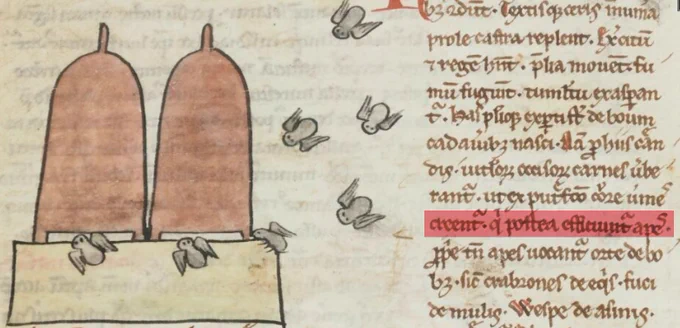 bz adiuͭ. Textisq; ceris innuma
prole castra replent. Exercitū
⁊ rege hn̄t. p̄lia mouent. fu
mū fugiunt. tumultu exaspan
t᷑. Has pleriq; expti sť de boum
cadauibz nasci. Nā p his cän
dis. uitłoꝝ occisoꝝ carnes ube
rant᷑. ut ex put̄fco c̄ore ūmes
creent᷑. q̇ postea efficiunt᷑ apes.
ꝓpe tn̄ apes uocant᷑ orte de bo
bz. sic̄ crabrones de eq̇s. fuci
de mulis. Wespe de asinis.